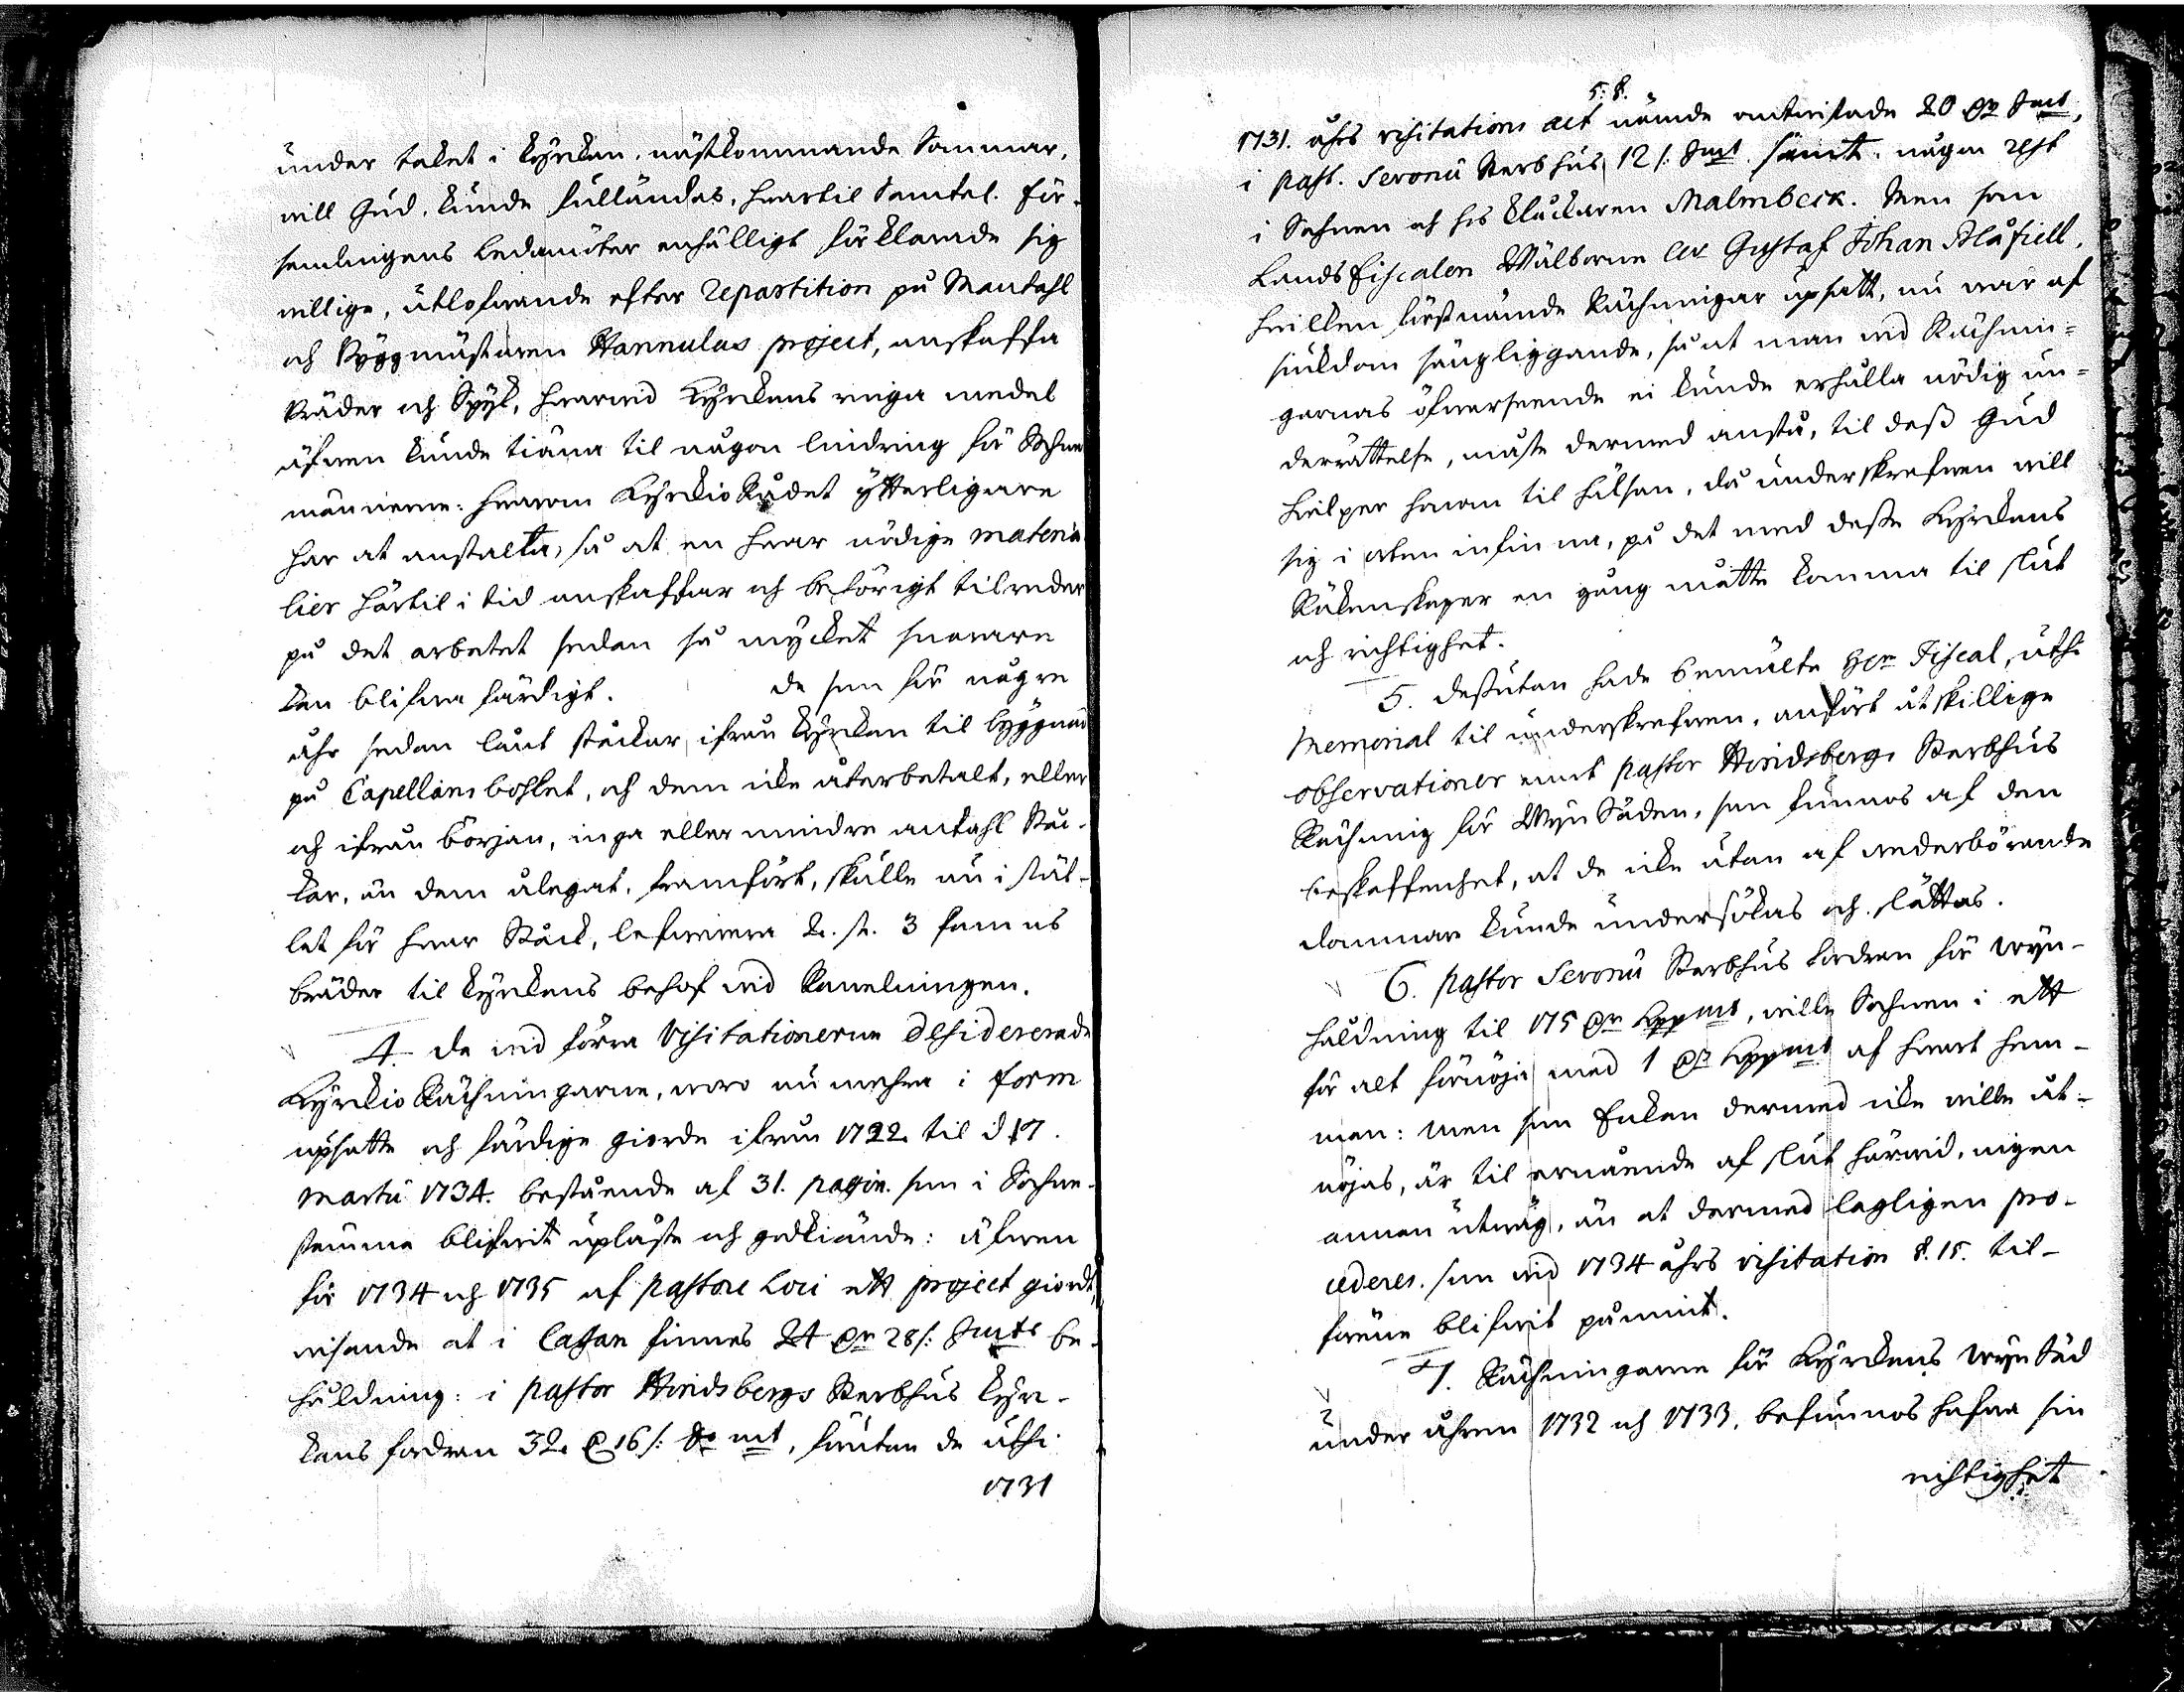 under taket i kyrckan, nästkommande Sommar,
will Gud, kunde fulländas, hwartil samtel. För-
samlingens Ledamöter enhälligt förklarade sig
willige, utlofwande efter repartition på Mantahl
och Byggmästaren Hannulas project, anskaffa
Bräder och Spik, hwarwid Kyrckans ringa medel
äfwen kunde tiäna til någon lindring för Sochne
männerne: hwarom KyrckioRådet ytterligare
har at anstalta, så at en hwar nödige materia
lier härtil i tid anskaffar och behörigt tilreder
på det arbetet sedan så mycket snarare
kan blifwa färdigt. de som för någre
åhr sedan lånt stockar ifrån kyrckan til byggnad
på Capellansbohlet, och dem icke återbetalt, eller
och ifrån början, inga eller mindre antahl Stoc-
kar, än dem ålegat, framfört, skulle nu i stäl-
let för hwar Stock, lefwerera 2. st. 3 famns
bräder til kyrckans behof wid Panelningen.
4. de wid förra Visitationerne desidererade
Kyrckio Räkningarne, woro nu mehra i form
upsatte och färdige giorde ifrån 1722 til d 17.
Martii 1734. bestående af 31. pagin. som i Sochne-
stämma blifwit uplåste och godkiände: äfwen
för 1734 och 1735 af Pastore Loci ett project giordt,
wisande at i Cassan finnes 24 Dr 28/: Smts be-
hållning: i Pastor Horidsbergs Sterbhus kyr-
kans fordran 32. D 16/: do mt, förutan de uthi
1731
5: 8.
1731. åhrs visitations act nämde antwistade 20 Dr Smt,
i Past. Seronii Sterbhus 12/: Smt. samt någon rest
i Sochnen och hos klockaren Malmbeck. Men som
LandsFiscalen Wälborne Gustaf Johan Blåfield,
hwilken förstnämde Räkningar upsatt, nu war af
siukdom sängliggande, så at man wid Räknin=
garnas öfwerseende ei kunde erhålla nödig un=
derrättelse, måste dermed anstå, til dess Gud
hielper honom til hälsan, då underskrefwen will
sig i orten infinna, på det med desse Kyrckans
Räkenskaper en gång måtte komma til slut
och richtighet.
5. dessutan hade bemälte Hr Fiscal, uthi
Memorial til underskrefwen, anfört åtskillige
observationer emot Pastor Horidsbergs Sterbhus
Räkning för WynSäden, som funnos af den
beskaffenhet, at de icke utan af wederbörande
domare kunde undersökas och slättas.
6. Pastor Seronii Sterbhus fordran för Wyn-
hållning til 175 Dr Kppmt, wille Sochnen i ett
för alt förnöja med 1 Dr Kppmt af hwart hem-
man: Men som Enkan dermed icke wille åt-
nöjas, är til ernående af slut härwid, ingen
annan utwäg, än at dermed lagligen pro-
cederes, som wid 1734 åhrs visitation §. 15. til-
förene blifwit påmint.
7. Räkningarne för Kyrckans WynSäd
under åhren 1732 och 1733, befunnos hafwa sin
richtighet